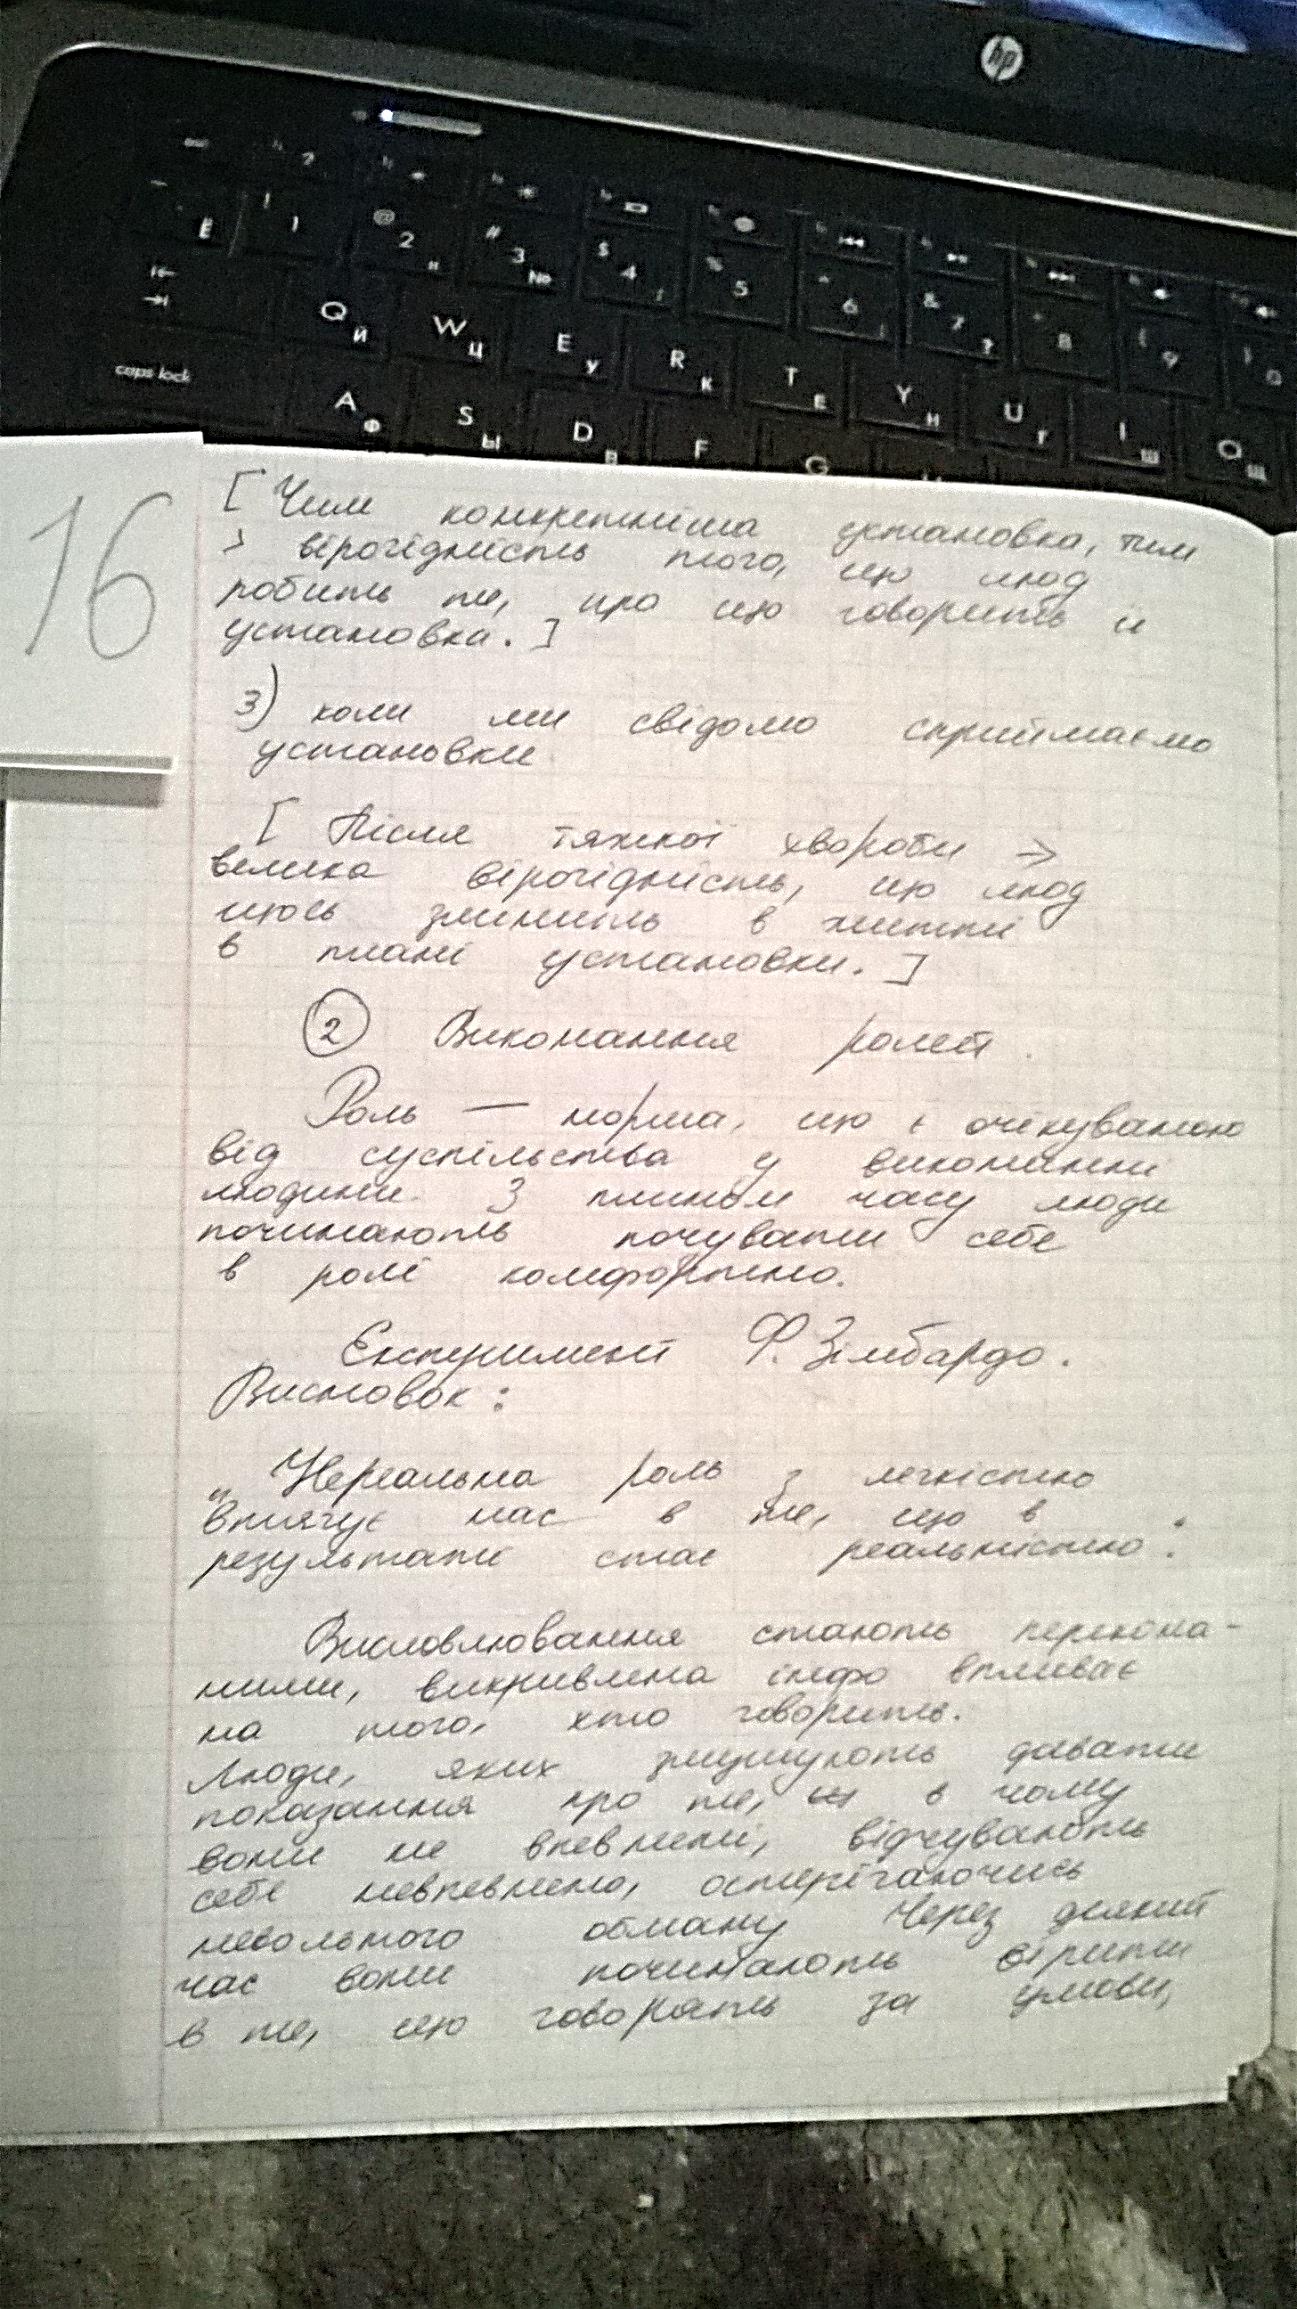 hp
caps lock
Q Й W Ц E У R К T Е Y Н U Г I Ш O Щ
A Ф S Ы D В F G
16
[ Чим конкретніша установка, тим
> вірогідність того, що люд
робить те, про що говорить її
установка. ]
3) коли ми свідомо сприймаємо
установки
[ Після тяжкої хвороби →
велика вірогідність, що люд
щось змінить в житті
в плані установки. ]
2 Виконання ролей.
Роль — норма, що є очікуваною
від суспільства у виконанні
людини. З плином часу люди
починають почувати себе
в ролі комфортно.
Експеримент Ф. Зімбардо.
Висновок:
„Нереальна роль з легкістю
втягує нас в те, що в
результаті стає реальністю“.
Висловлювання стають перекона-
ними, викривлена інфо впливає
на того, хто говорить.
Люди, яких змушують давати
показання про те, в чому
вони не впевнені, відчувають
себе невпевнено, остерігаючись
невольного обману Через деякий
час вони починають вірити
в те, що говорять за умови,